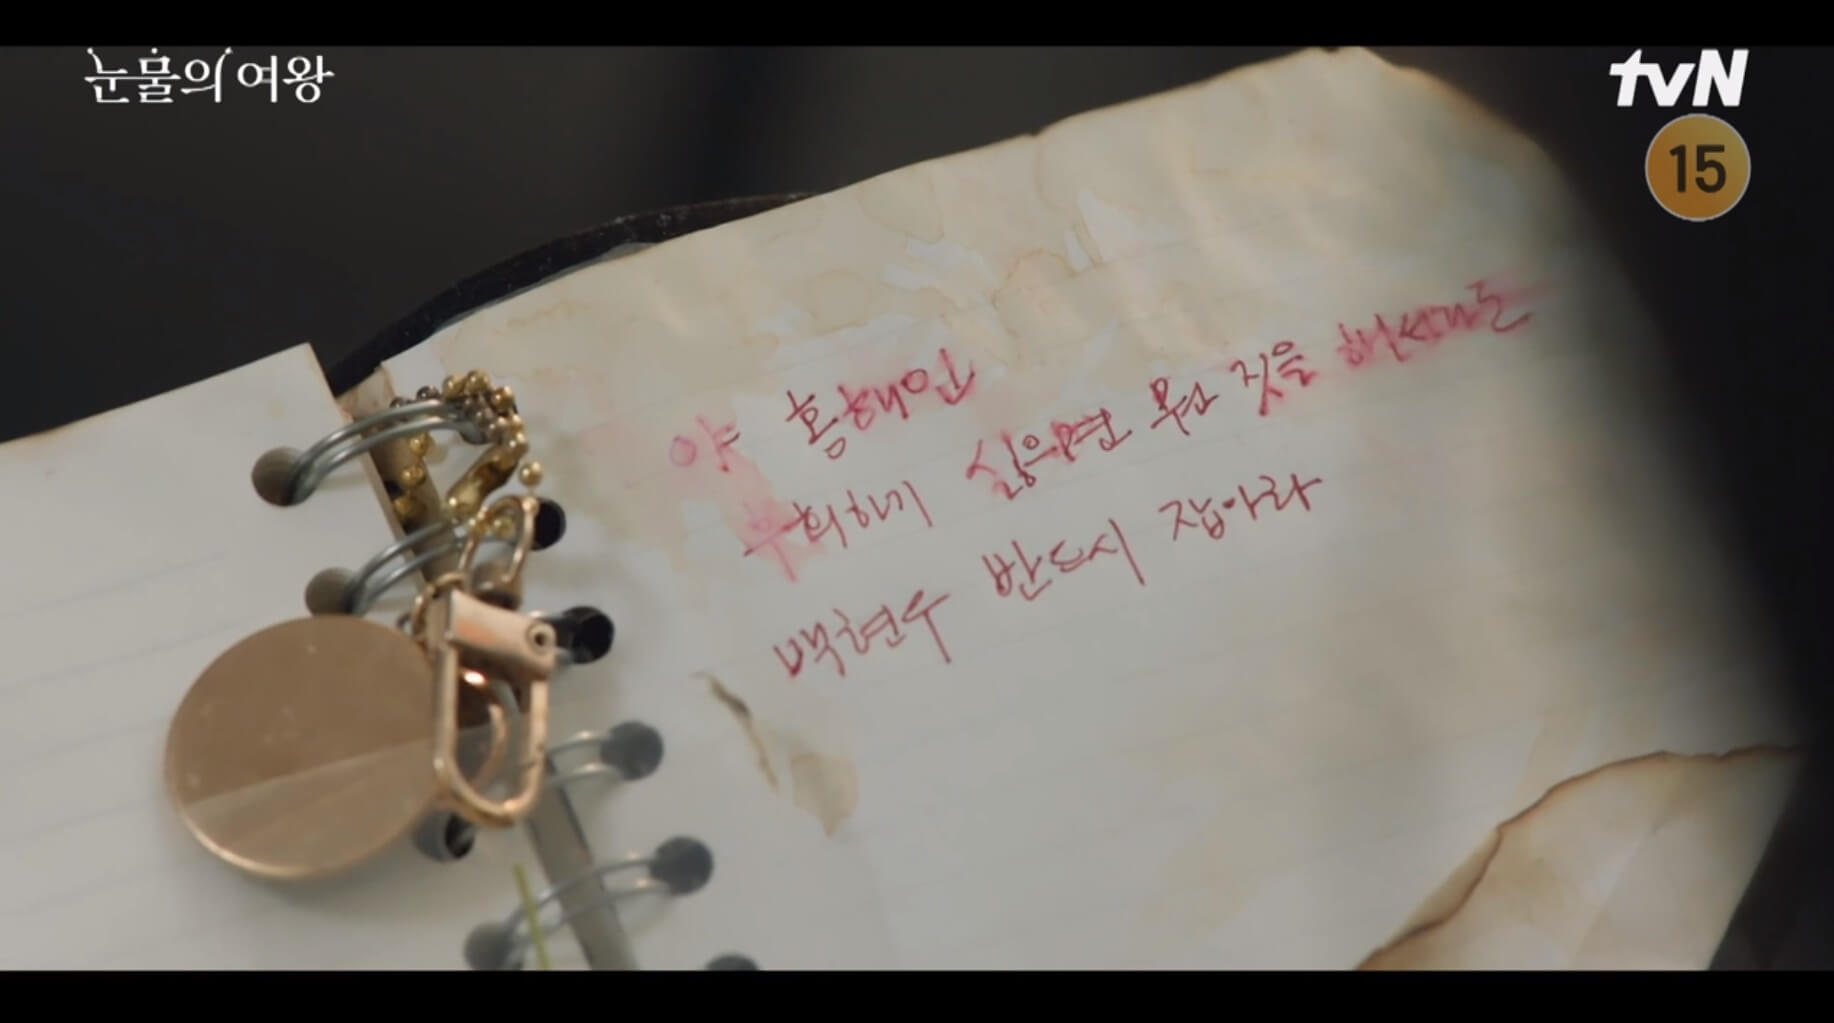 눈물의 여왕
tvN
15
야 홍해인
후회하기 싫으면 뭔 짓을 해서라도
백현우 반드시 잡아라